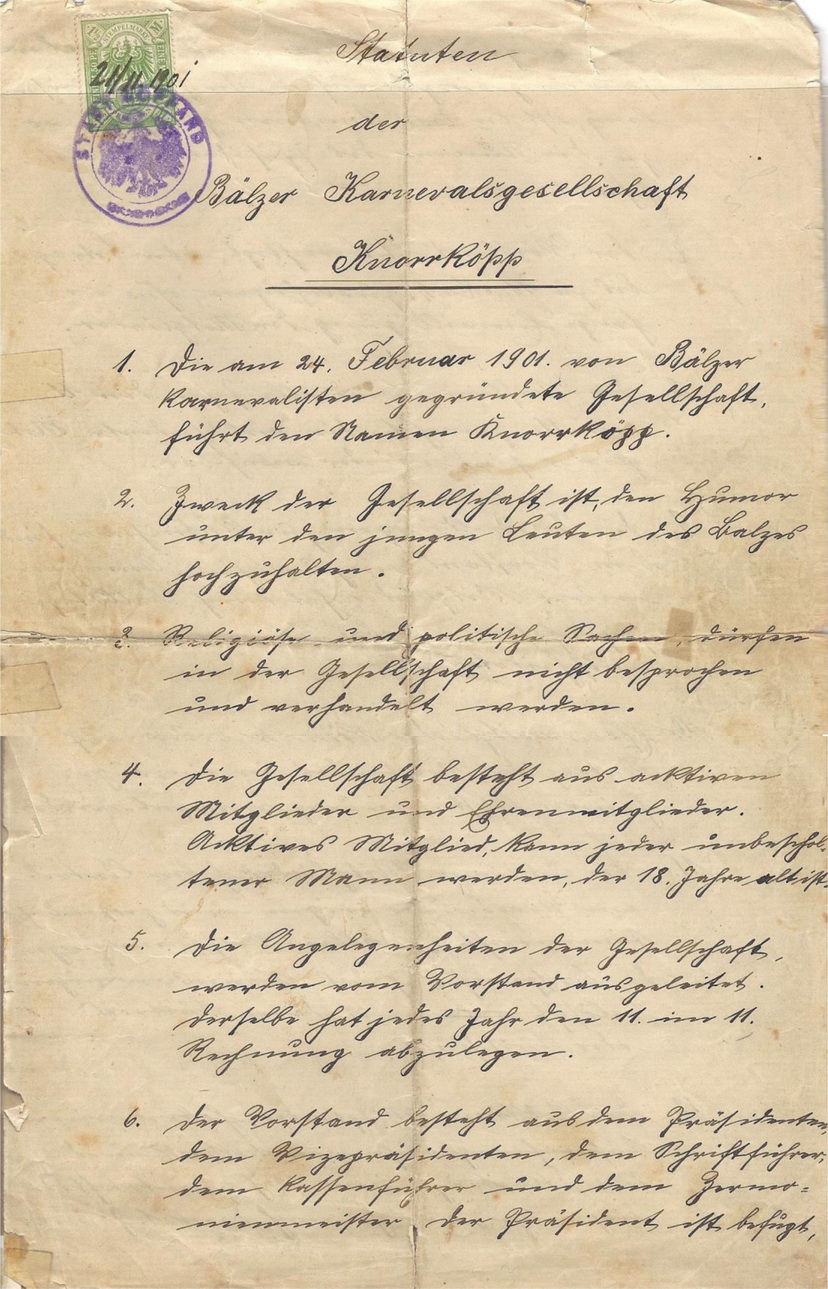 STEMPELMARKE
21/11 1901
STADT DORTMUND
Statuten
der
Bälzer Karnevalsgesellschaft
Knorrköpp
1. Die am 24. Februar 1901. von Bälzer
Karnevalisten gegründete Gesellschaft,
führt den Namen Knorrköpp.
2. Zweck der Gesellschaft ist, den Humor
unter den jungen Leuten des Balzes
hochzuhalten.
3. Religiöse und politische Sachen, dürfen
in der Gesellschaft nicht besprochen
und verhandelt werden.
4. Die Gesellschaft besteht aus acktiven
Mitglieder und Ehrenmitglieder.
Acktives Mitglied, kann jeder unbeschol-
tener Mann werden, der 18. Jahre alt ist.
5. Die Angelegenheiten der Gesellschaft,
werden vom Vorstand ausgeleitet.
Derselbe hat jedes Jahr den 11. im 11.
Rechnung abzulegen.
6. Der Vorstand besteht aus dem Präsidenten,
dem Vizepräsidenten, dem Schriftführer,
dem Kassenführer und dem Zermo=
nienmeister. Der Präsident ist befugt,